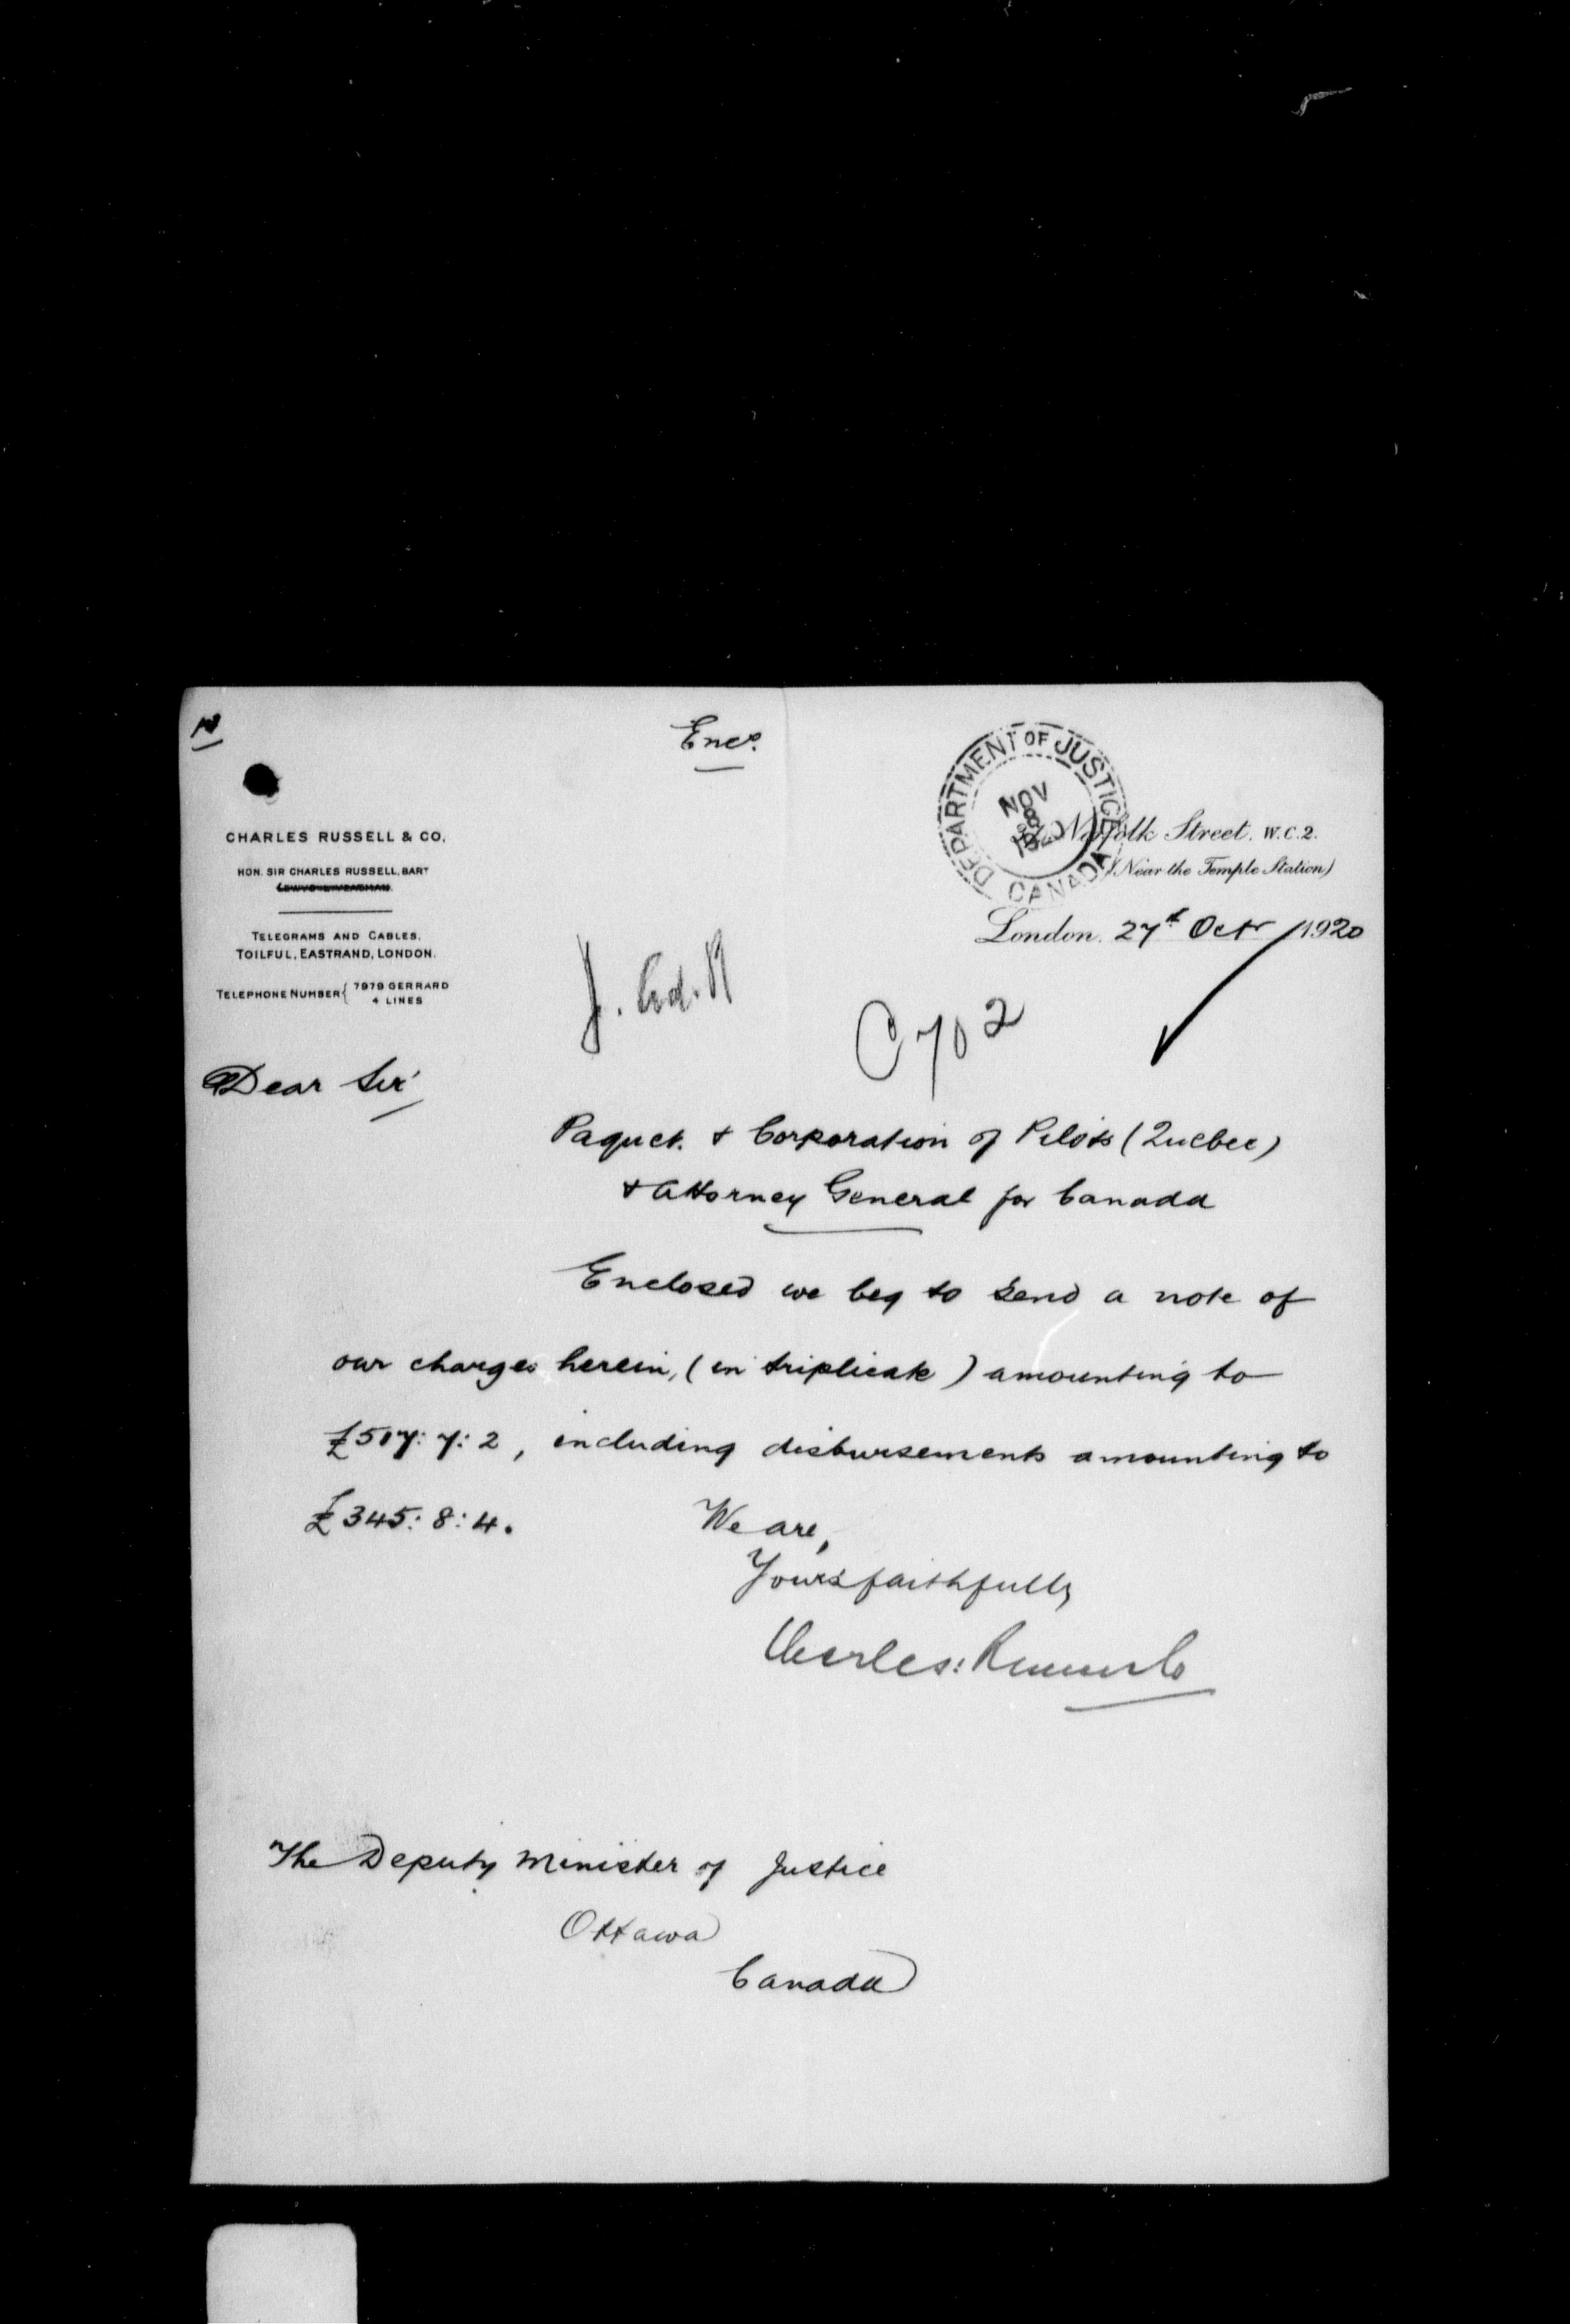 Encs.
DEPARTMENT OF JUSTICE
NOV
8
1920
CANADA
CHARLES RUSSELL & CO.
HON. SIR CHARLES RUSSELL, BART
Norfolk Street, W.C.2.
(Near the Temple Station)
TELEGRAMS AND CABLES,
TOILFUL, EASTRAND, LONDON.
TELEPHONE NUMBER { 7979 GERRARD
4 LINES
London, 27th Octr 1920
C 702
Dear Sir
Paquet. & Corporation of Pilots (Quebec)
& Attorney General for Canada
Enclosed we beg to send a note of
our charges herein, (in triplicate) amounting to
£517: 7: 2, including disbursements amounting to
£345: 8: 4.
We are,
Yours faithfully
Charles: Russell & Co
The Deputy Minister of Justice
Ottawa
Canada